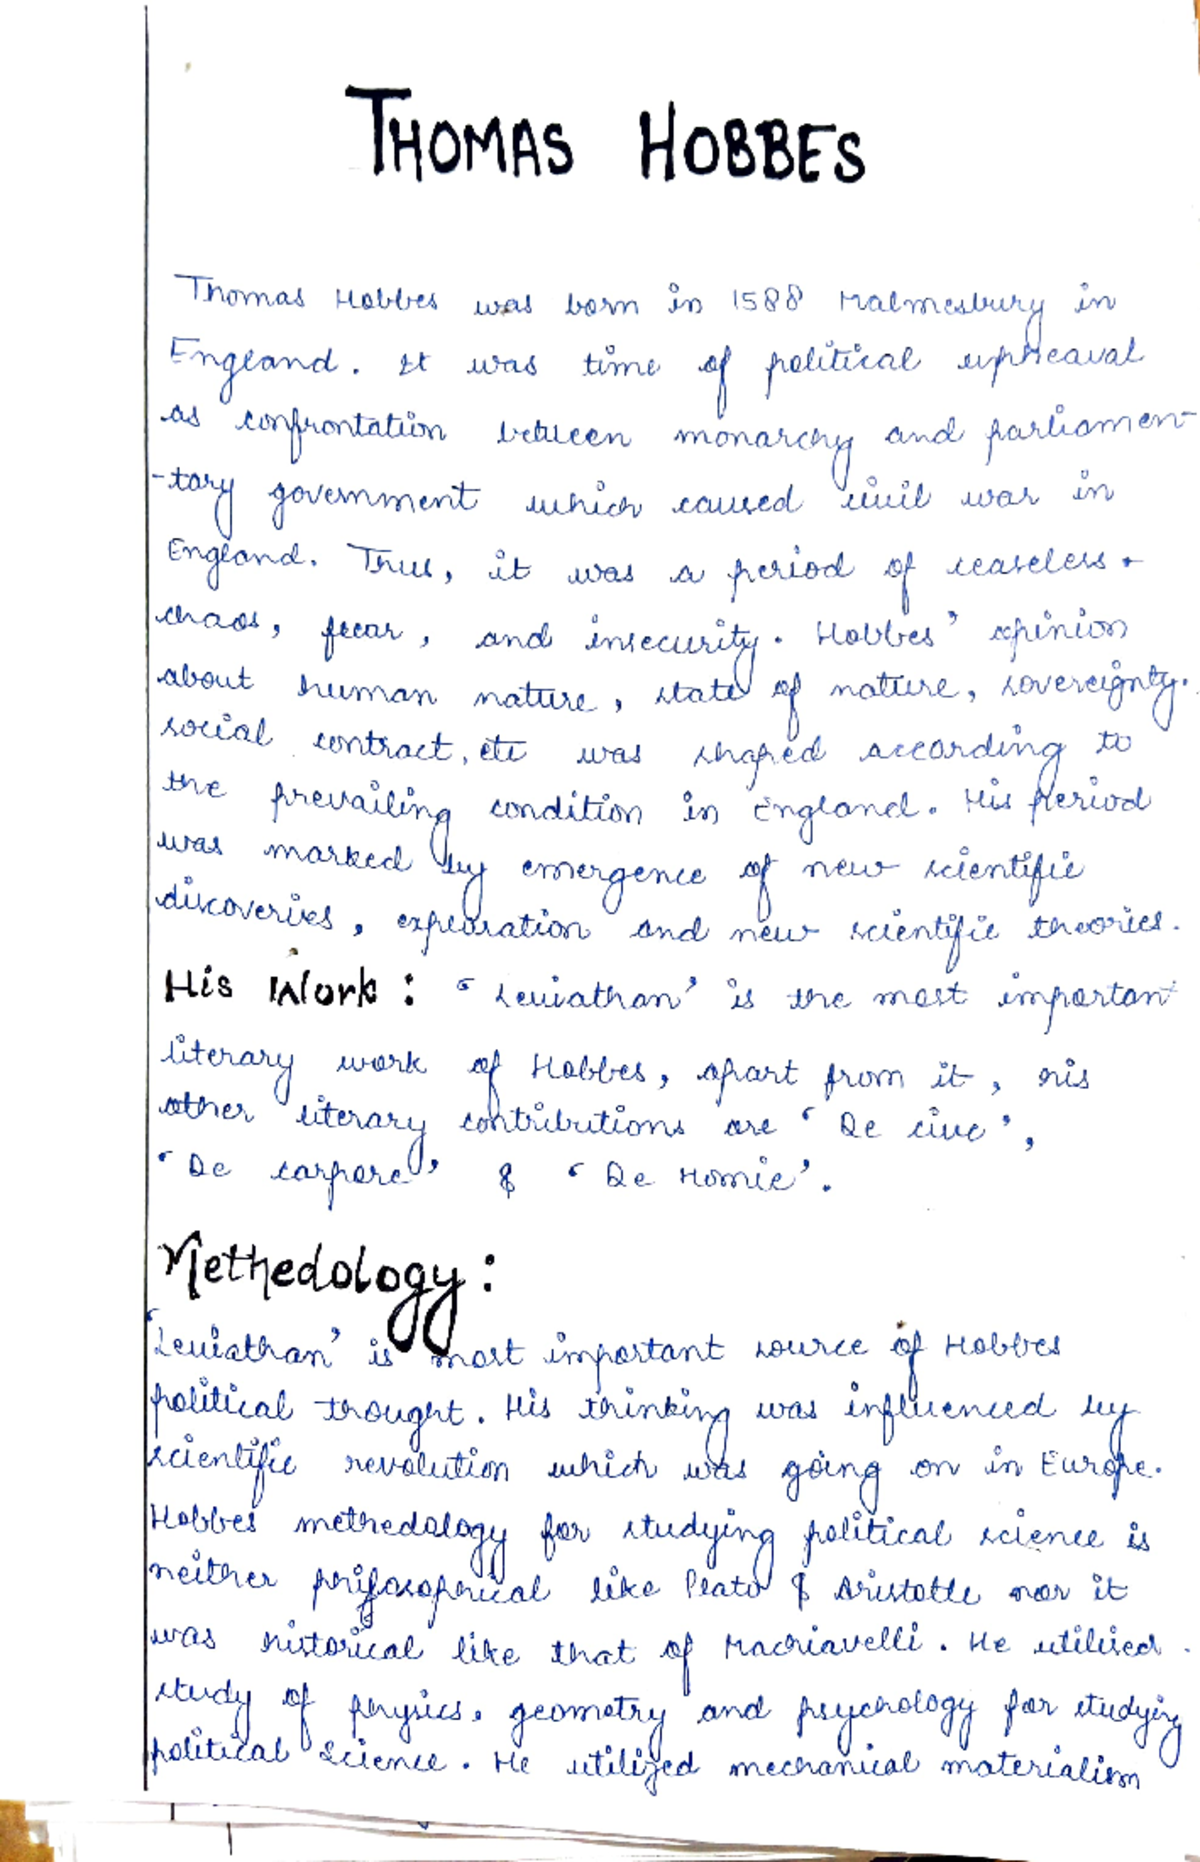 THOMAS HOBBES
Thomas Hobbes was born in 1588 Malmesbury in
England. It was time of political upheaval
as confrontation between monarchy and parliamen-
-tary government which caused civil war in
England. Thus, it was a period of ceaseless
chaos, fear, and insecurity. Hobbes' opinion
about human nature, state of nature, sovereignty.
social contract, etc was shaped according to
the prevailing condition in England. His period
was marked by emergence of new scientific
discoveries, exploration and new scientific theories.
His Work: 'Leviathan' is the most important
literary work of Hobbes, apart from it, his
other literary contributions are 'De cive',
'De corpore' & 'De Homie'.
Methedology:
'Leviathan' is most important source of Hobbes
political thought. His thinking was influenced by
scientific revolution which was going on in Europe.
Hobbes methedology for studying political science is
neither philosophical like Plato & Aristotle nor it
was historical like that of Machiavelli. He utilised
study of physics, geometry and psychology for studying
political science. He utilized mechanical materialism